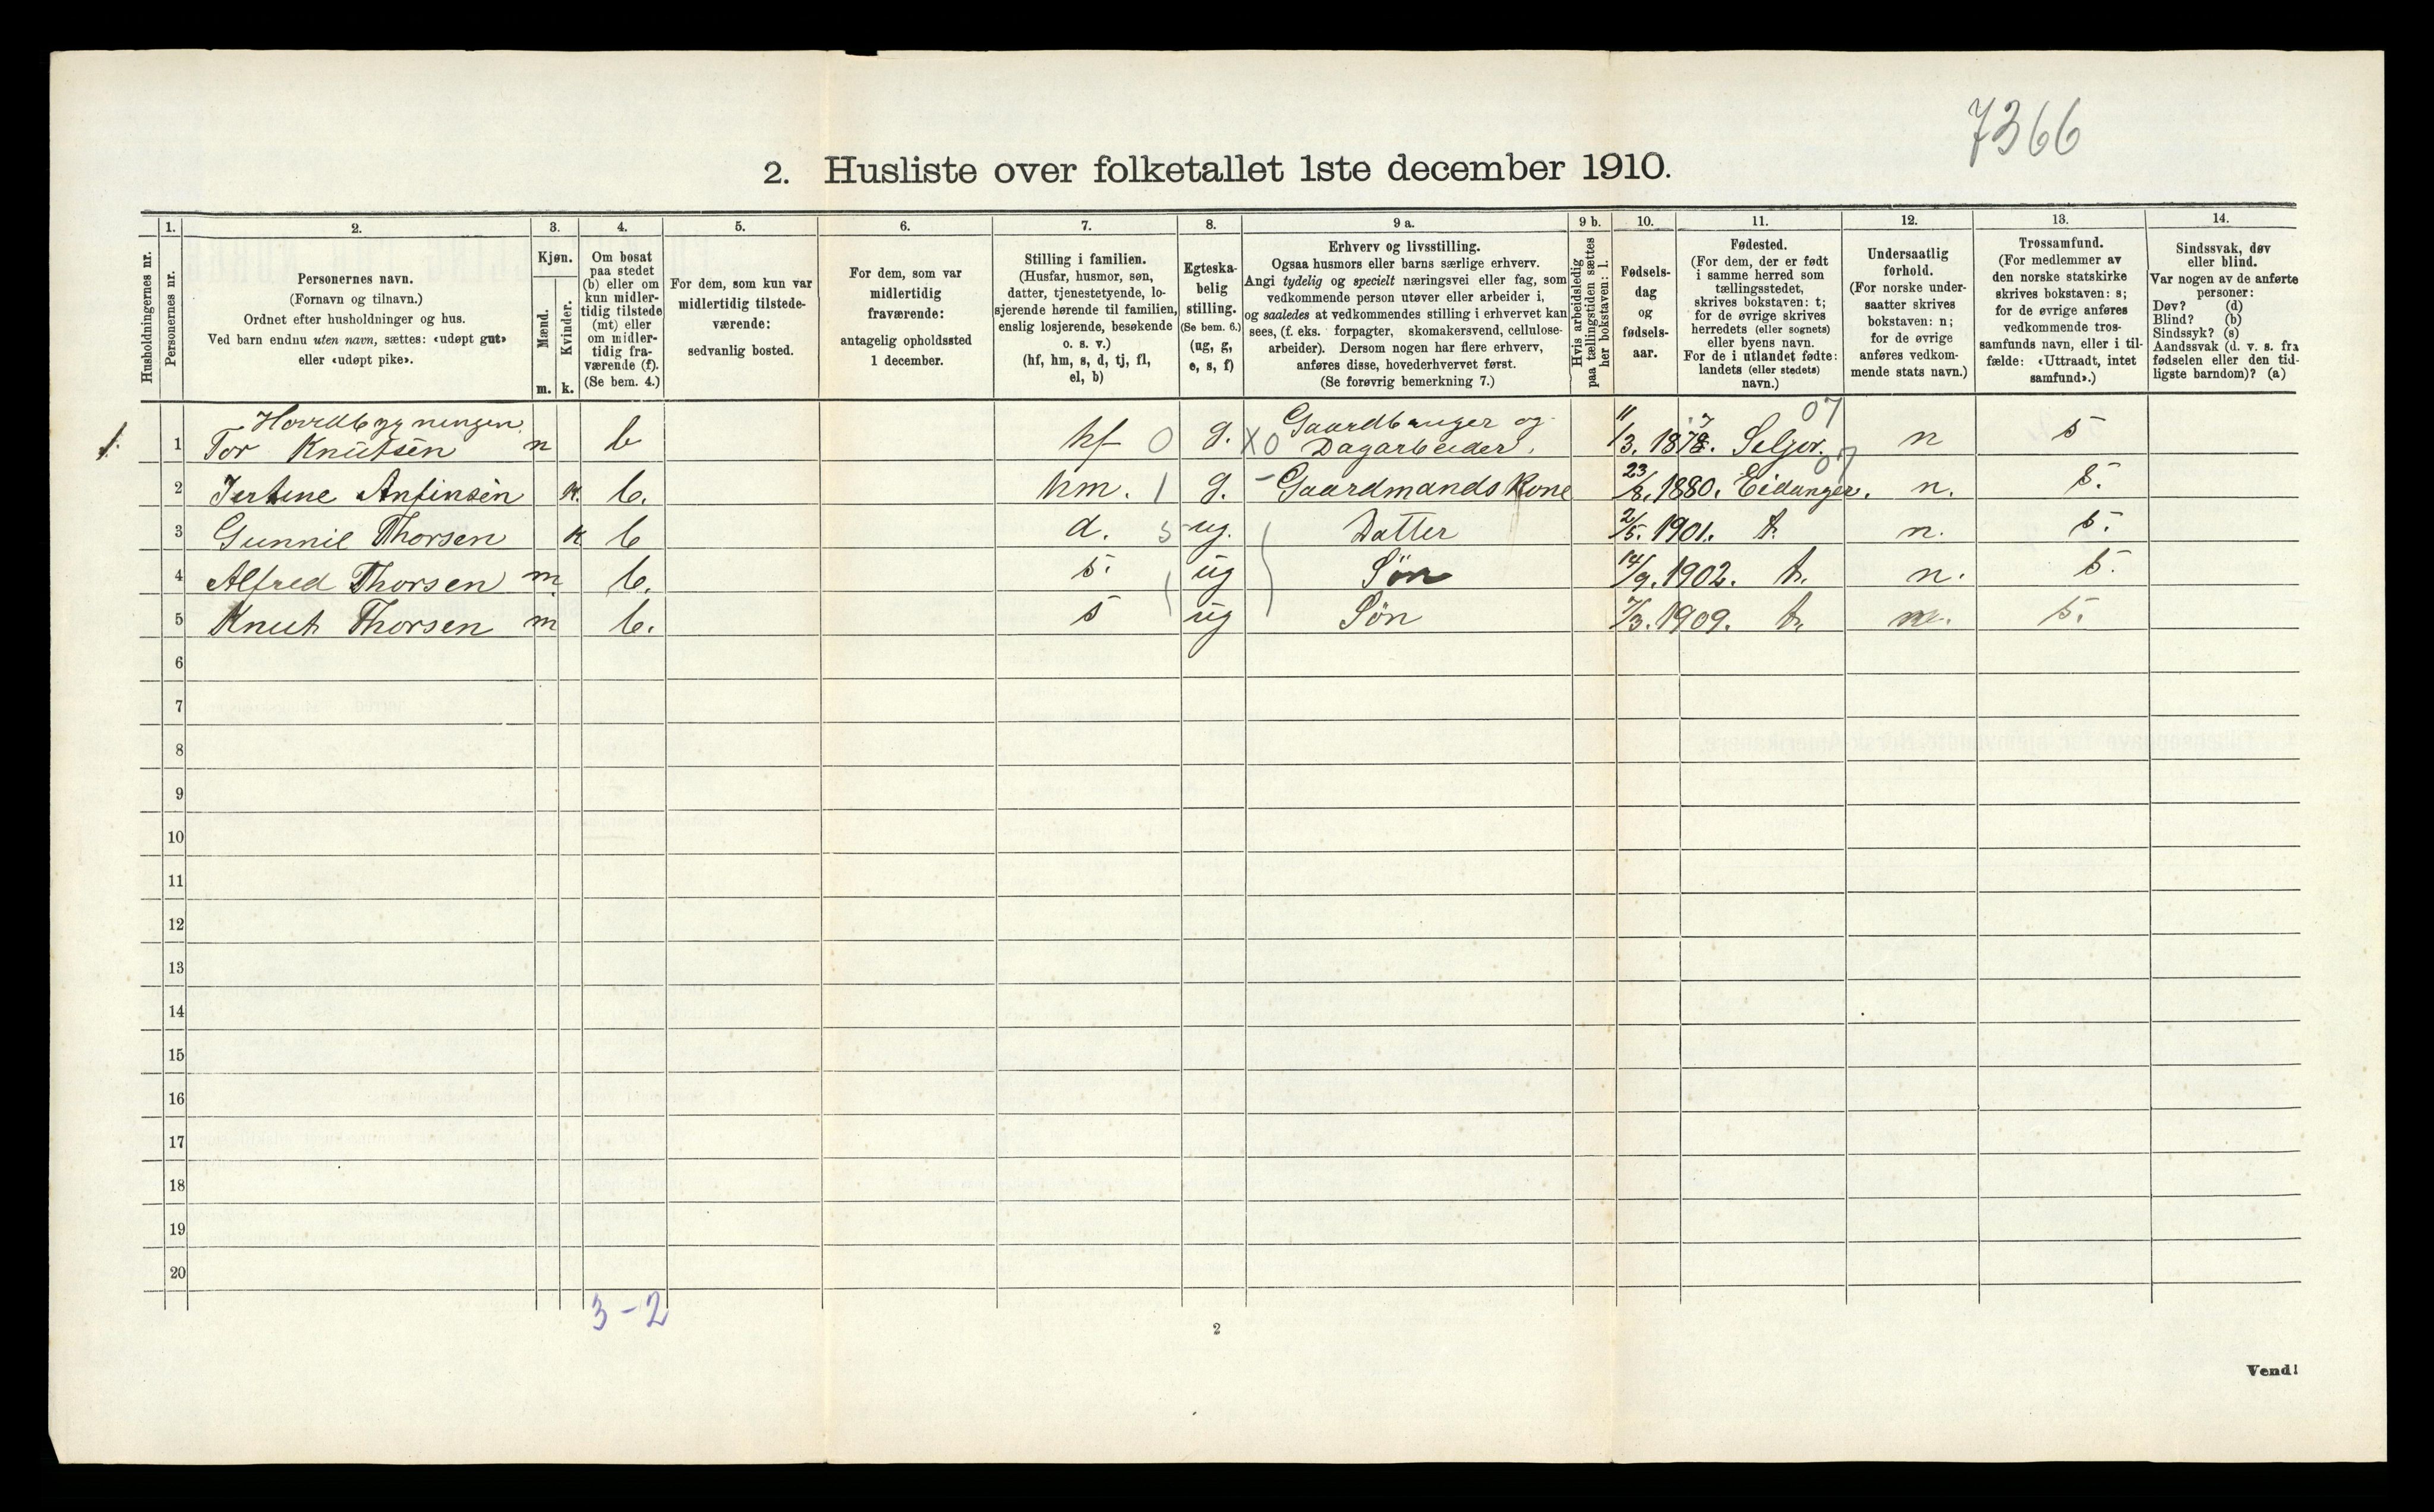 7366
2. Husliste over folketallet 1ste december 1910.
Husholdningernes nr.
1. Personernes nr.
2. Personernes navn.
(Fornavn og tilnavn.)
Ordnet efter husholdninger og hus.
Ved barn endnu uten navn, sættes: «udøpt gut»
eller «udøpt pike».
3. Kjøn.
Mænd. m.
Kvinder. k.
4. Om bosat
paa stedet
(b) eller om
kun midler-
tidig tilstede
(mt) eller
om midler-
tidig fra-
værende (f).
(Se bem. 4.)
5. For dem, som kun var
midlertidig tilstede-
værende:
sedvanlig bosted.
6. For dem, som var
midlertidig
fraværende:
antagelig opholdssted
1 december.
7. Stilling i familien.
(Husfar, husmor, søn,
datter, tjenestetyende, lo-
sjerende hørende til familien,
enslig losjerende, besøkende
o. s. v.)
(hf, hm, s, d, tj, fl,
el, b)
8. Egteska-
belig
stilling.
(Se bem. 6.)
(ug, g,
e, s, f)
9 a. Erhverv og livsstilling.
Ogsaa husmors eller barns særlige erhverv.
Angi tydelig og specielt næringsvei eller fag, som
vedkommende person utøver eller arbeider i,
og saaledes at vedkommendes stilling i erhvervet kan
sees, (f. eks. forpagter, skomakersvend, cellulose-
arbeider). Dersom nogen har flere erhverv,
anføres disse, hovederhvervet først.
(Se forøvrig bemerkning 7.)
9 b. Hvis arbeidsledig
paa tællingstiden sættes
her bokstaven: l.
10. Fødsels-
dag
og
fødsels-
aar.
11. Fødested.
(For dem, der er født
i samme herred som
tællingsstedet,
skrives bokstaven: t;
for de øvrige skrives
herredets (eller sognets)
eller byens navn.
For de i utlandet fødte:
landets (eller stedets)
navn.)
12. Undersaatlig
forhold.
(For norske under-
saatter skrives
bokstaven: n;
for de øvrige
anføres vedkom-
mende stats navn.)
13. Trossamfund.
(For medlemmer av
den norske statskirke
skrives bokstaven: s;
for de øvrige anføres
vedkommende tros-
samfunds navn, eller i til-
fælde: «Uttraadt, intet
samfund».)
14. Sindssvak, døv
eller blind.
Var nogen av de anførte
personer:
Døv? (d)
Blind? (b)
Sindssyk? (s)
Aandssvak (d. v. s. fra
fødselen eller den tid-
ligste barndom)? (a)
Hovedbygningen Gaardbruger og 07
1. 1 Tor Knutsen m b hf 0 g. X0 Dagarbeider. 11/3. 1878. 7 Seljor. n s
07
2 Jertine Anfinsen k. b. hm. 1 g. - Gaardmands Kone 23/8. 1880. Eidanger. n. s.
3 Gunnil Thorsen k b d. 5 ug. Datter 2/5. 1901. t. n. s.
4 Alfred Thorsen m b. s. ug Søn 14/9. 1902. t. n. s.
5 Knut Thorsen m b. s ug Søn 7/3. 1909. t. n. s.
6
7
8
9
10
11
12
13
14
15
16
17
18
19
20
3-2
2
Vend!